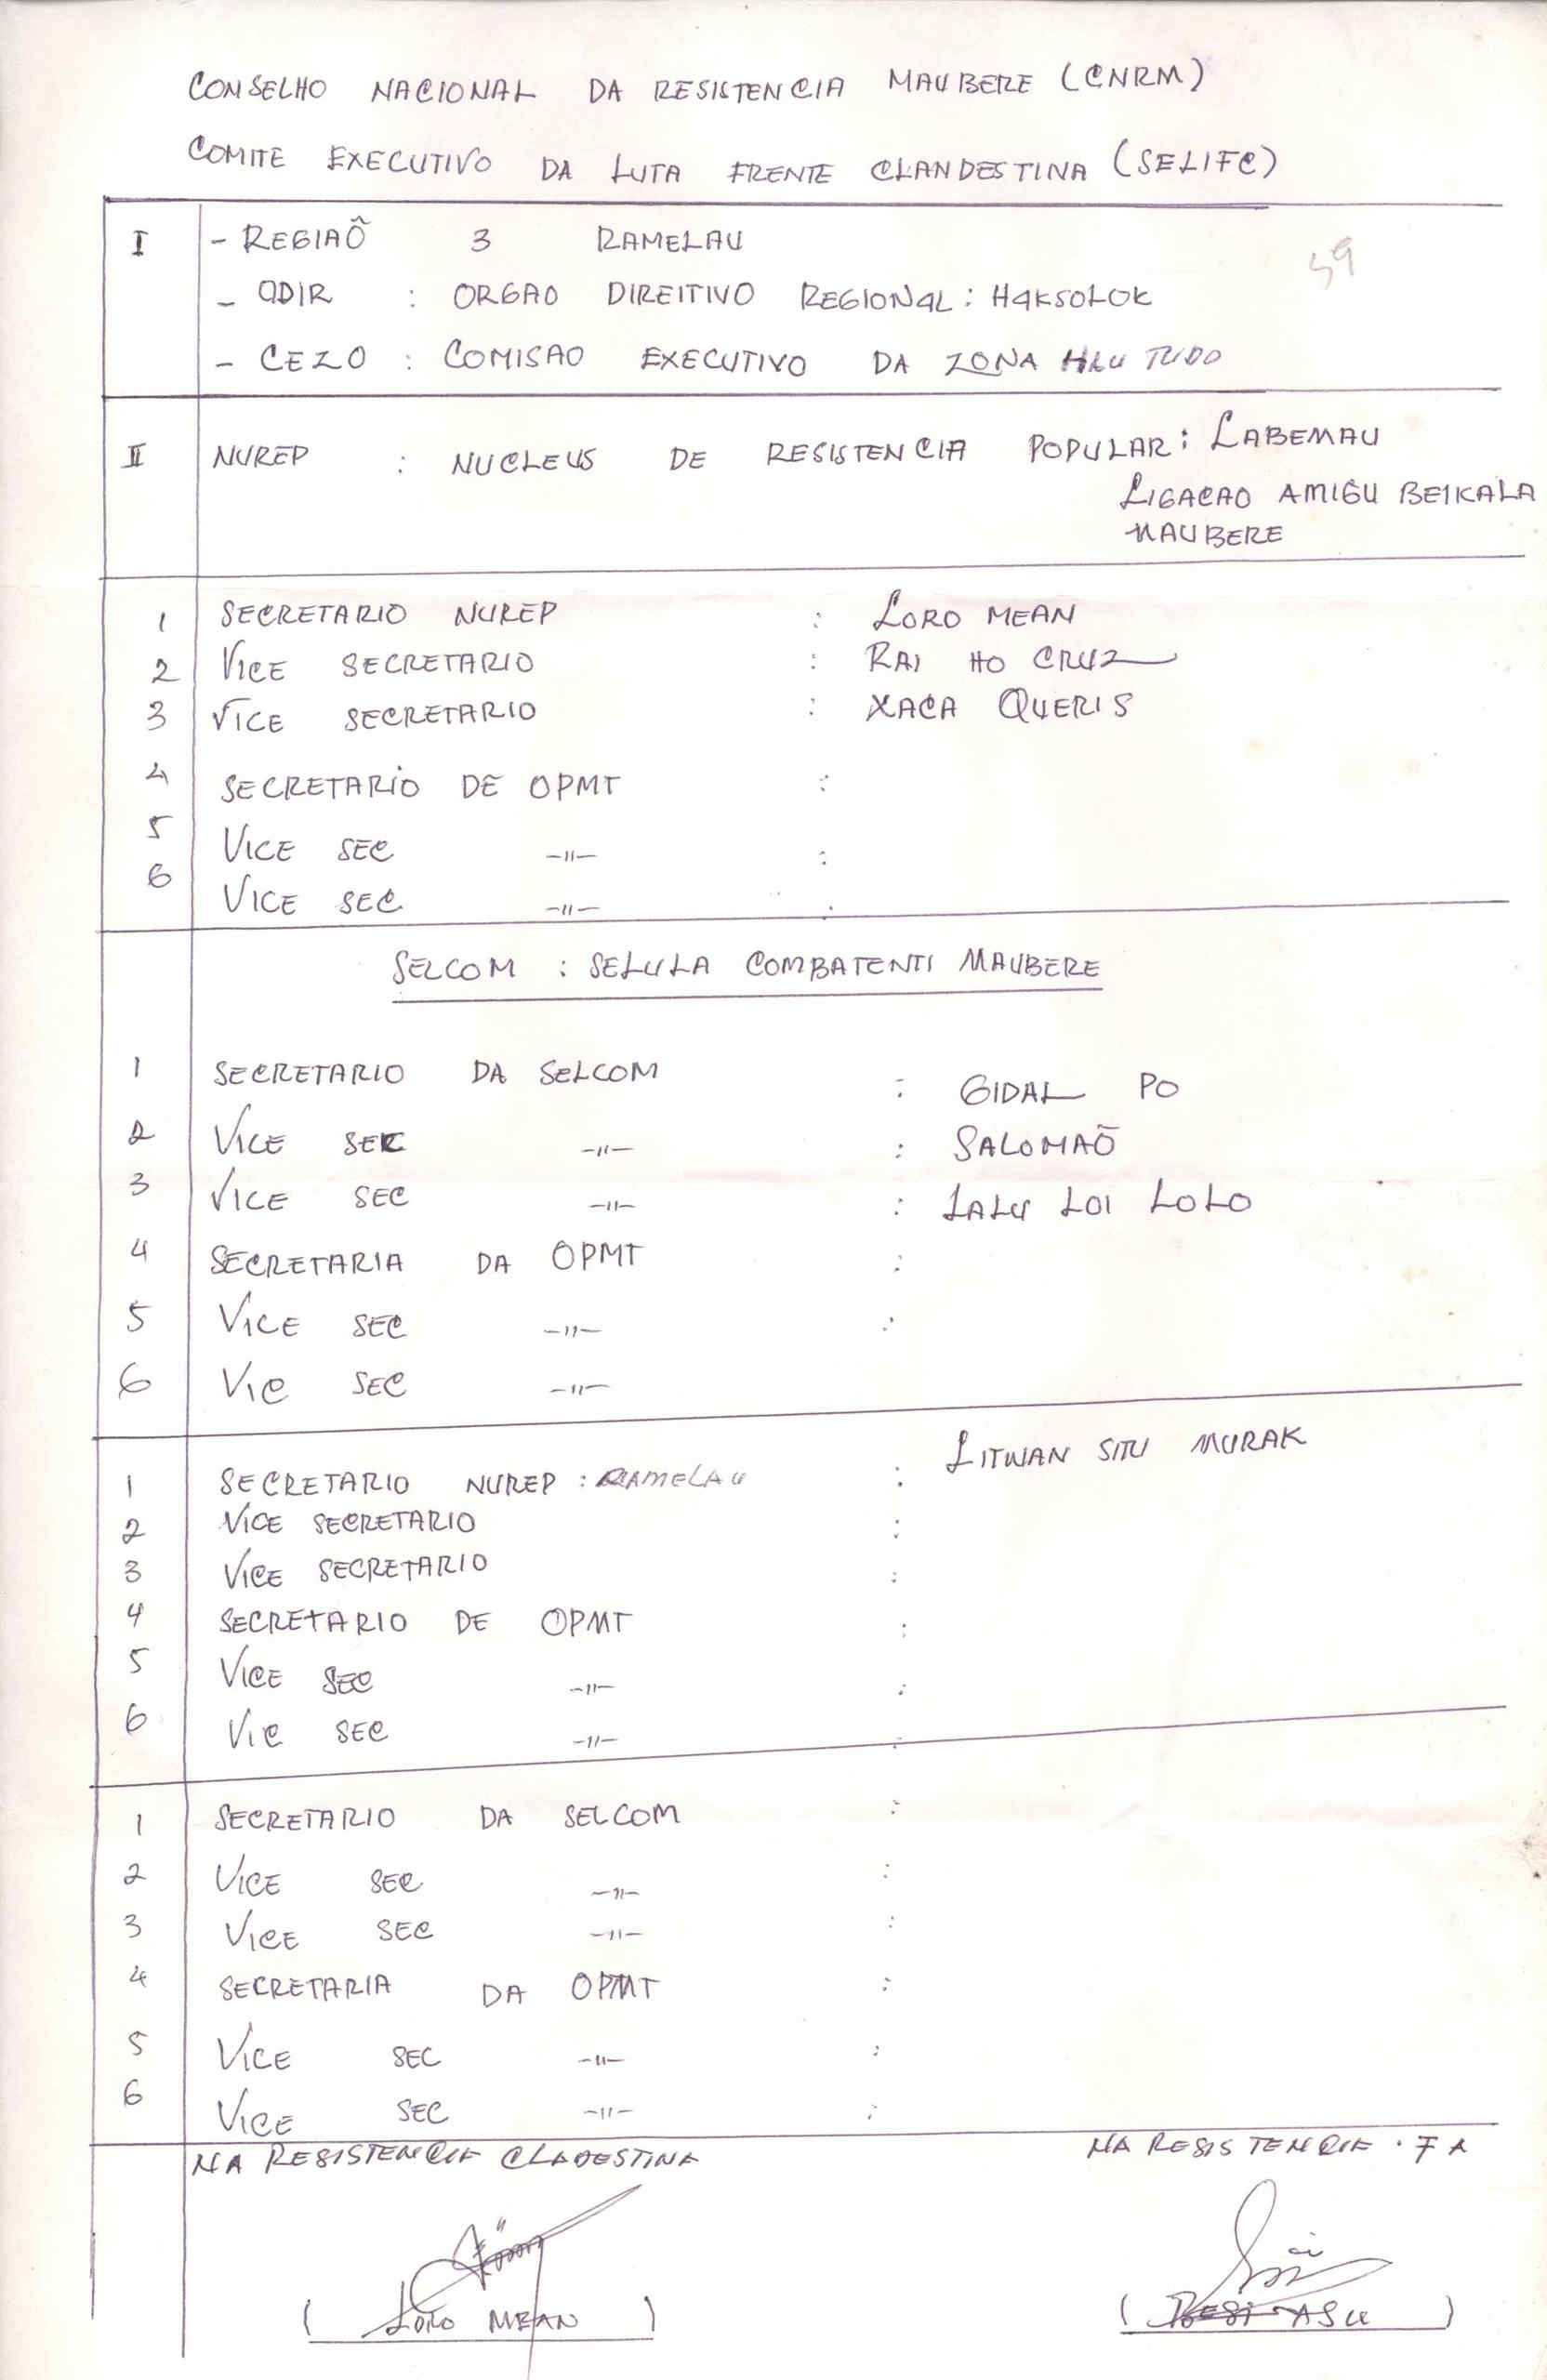 CONSELHO NACIONAL DA RESISTENCIA MAUBERE (CNRM)
COMITE EXECUTIVO DA LUTA FRENTE CLANDESTINA (SELIFC)
I - REGIAÕ 3 RAMELAU
59
- ODIR : ORGAO DIREITIVO REGIONAL : HAKSOLOK
- CEZO : COMISAO EXECUTIVO DA ZONA HAU TUDO
II NUREP : NUCLEUS DE RESISTENCIA POPULAR : LABEMAU
LIGACAO AMIGU BEIKALA
MAUBERE
1 SECRETARIO NUREP : LORO MEAN
2 VICE SECRETARIO : RAI HO CRUZ
3 VICE SECRETARIO : XACA QUERIS
4 SECRETARIO DE OPMT :
5 VICE SEC -"- :
6 VICE SEC -"- :
SELCOM : SELULA COMBATENTI MAUBERE
1 SECRETARIO DA SELCOM : GIDAL PO
2 VICE SEC -"- : SALOMAÕ
3 VICE SEC -"- : LALU LOI LOLO
4 SECRETARIA DA OPMT :
5 VICE SEC -"- :
6 VIC SEC -"-
1 SECRETARIO NUREP : RAMELAU : LITWAN SITU MURAK
2 VICE SECRETARIO :
3 VICE SECRETARIO :
4 SECRETARIO DE OPMT :
5 VICE SEC -"- :
6 VIC SEC -"- :
1 SECRETARIO DA SELCOM :
2 VICE SEC -"- :
3 VICE SEC -"- :
4 SECRETARIA DA OPMT :
5 VICE SEC -"- :
6 VICE SEC -"- :
NA RESISTENCIA CLADESTINA NA RESISTENCIA . F A
( LORO MEAN ) ( ASU )